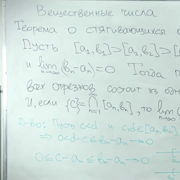 Вещественные числа
Теорема о стягивающихся о
Пусть [a₁,b₁]⊃[a₂,b₂]⊃[
и lim(bₙ-aₙ)=0 Тогда п
всех отрезков состоит из
И, если {c}=⋂[aₙ,bₙ], то lim
Д-во: Пусть c≤d и c,d∈[aₙ,b
⇒ 0≤d-c≤bₙ-aₙ→0
0≤c-aₙ≤bₙ-aₙ→0